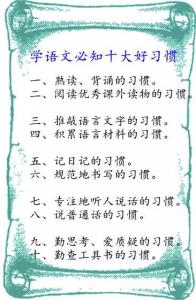 学语文必知十大好习惯
一、熟读、背诵的习惯。
二、阅读优秀课外读物的习惯。
三、推敲语言文字的习惯。
四、积累语言材料的习惯。
五、记日记的习惯。
六、规范地书写的习惯。
七、专注地听人说话的习惯。
八、说普通话的习惯。
九、勤思考、爱质疑的习惯。
十、勤查工具书的习惯。